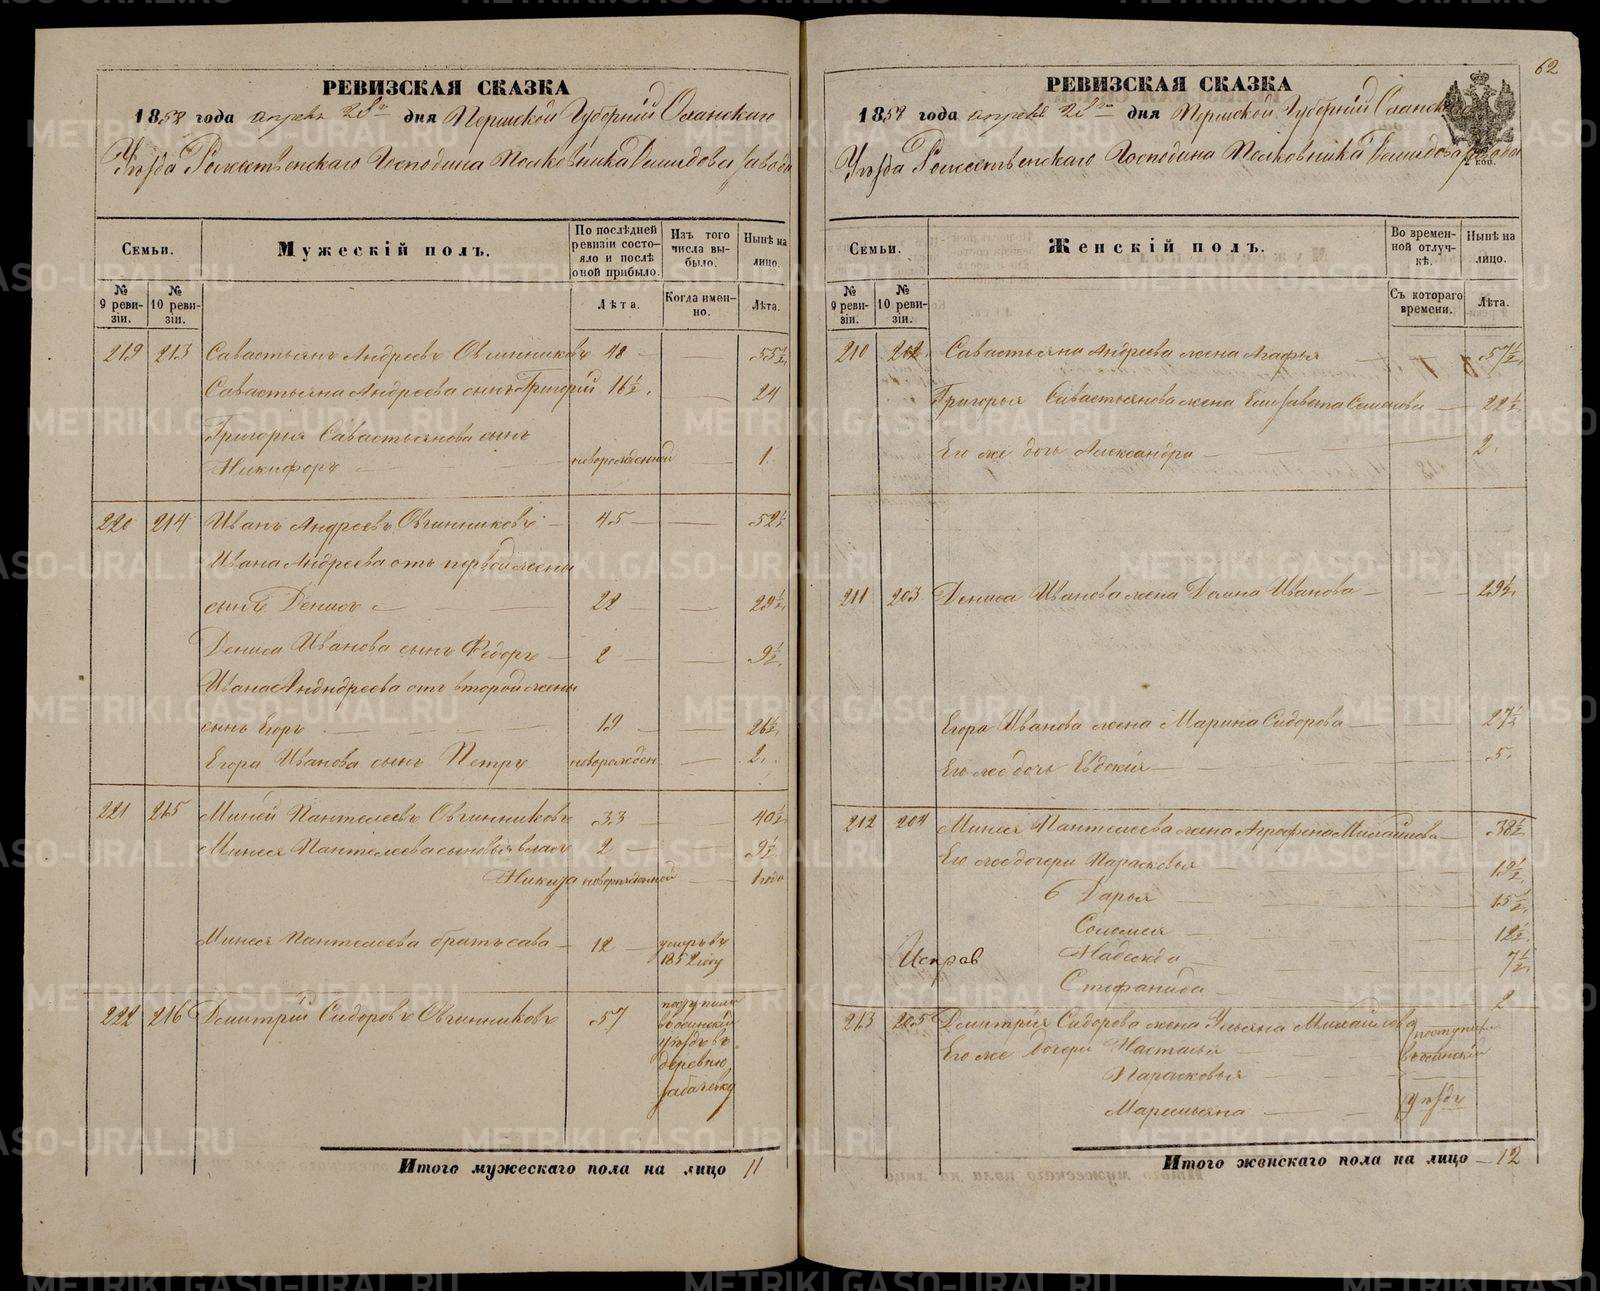 РЕВИЗСКАЯ СКАЗКА
1858 года апреля 28го дня Пермской Губернiи Оханскаго
Уѣзда Рождественскаго Господина Полковника Демидова завода
Семьи.
Мужескiй полъ.
По послѣдней ревизiи состояло и послѣ оной прибыло.
Изъ того числа выбыло.
Нынѣ на лицо.
№ 9 ревизiи.
№ 10 ревизiи.
Лѣта.
Когда именно.
Лѣта.
219 213 Савастьянъ Андреевъ Овчинниковъ 48 55½
Савастьяна Андреева сынъ Григорiй 16½ 24
Григорья Савастьянова сынъ
Никифоръ новорожденный 1
220 214 Иванъ Андреевъ Овчинниковъ 45 52½
Ивана Андреева отъ первой жены
сынъ Денисъ 22 29½
Дениса Иванова сынъ Федоръ 2 9½
Ивана Андреева отъ второй жены
сынъ Егоръ 19 26½
Егора Иванова сынъ Петръ новорожден 2
221 215 Миней Пантелеевъ Овчинниковъ 33 40½
Минея Пантелеева сыновья Власъ 2 9½
Никита новорожденной 1 годъ
Минея Пантелеева братъ Сава 12 умеръ въ
1852 году
222 216 Дмитрiй Сидоровъ Овчинниковъ 57 поступилъ
въ осинскiй
уѣздъ въ
деревню
Итого мужескаго пола на лицо 11
62
РЕВИЗСКАЯ СКАЗКА
1858 года апреля 28го дня Пермской Губернiи Оханскаго
Уѣзда Рождественскаго Господина Полковника Демидова завода
коп.
Семьи.
Женскiй полъ.
Во временной отлучкѣ.
Нынѣ на лицо.
№ 9 ревизiи.
№ 10 ревизiи.
Съ котораго времени.
Лѣта.
210 202 Савастьяна Андреева жена Агафья 57½
Григорья Савастьянова жена Елисавета Семенова 22½
Его же дочь Александра 2
211 203 Дениса Иванова жена Домна Иванова 29½
Егора Иванова жена Марина Сидорова 27½
Его же дочь Евдокiя 5
212 204 Минея Пантелеева жена Агрофена Михайлова 38½
Его же дочери Парасковья 19½
Дарья 15½
Соломея 12½
Исправ Надежда 7½
Стефанида 2
213 205 Дмитрiя Сидорова жена Ульяна Михайлова поступили
Его же дочери Настасья въ осинскiй
Парасковья
Маремьяна уѣздъ
Итого женскаго пола на лицо 12
METRIKI.GASO-URAL.RU